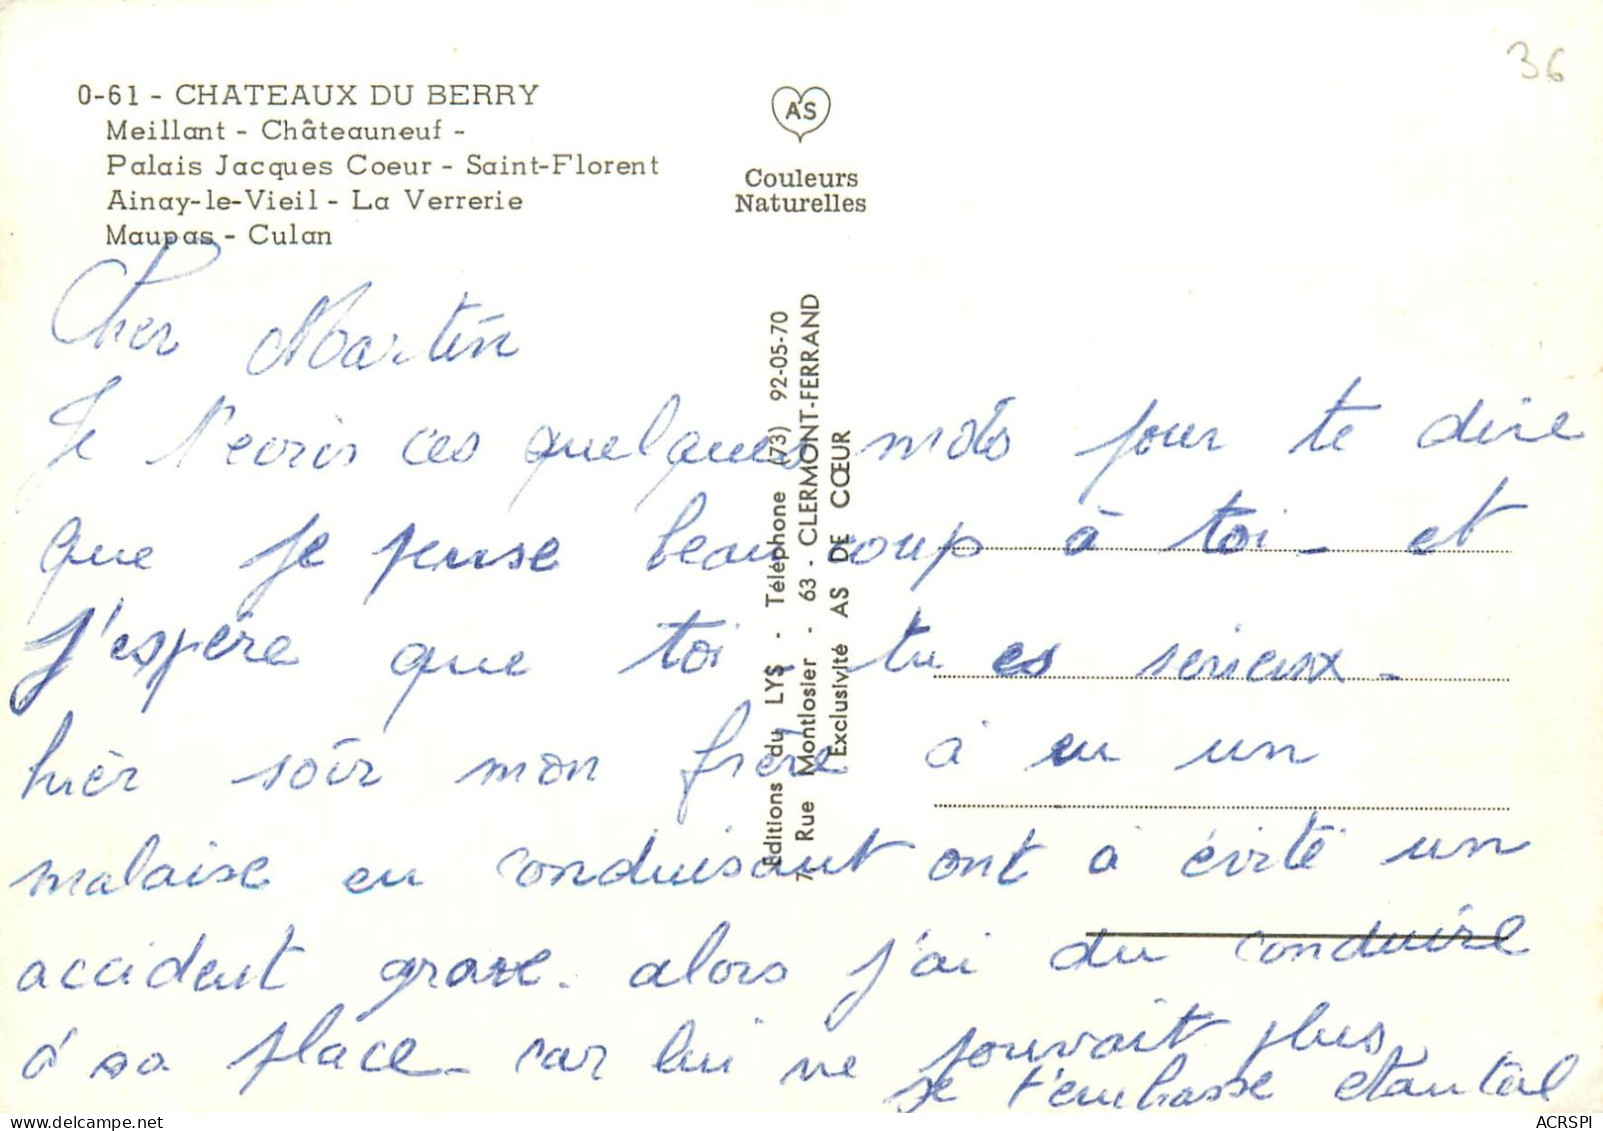 36
0-61 - CHATEAUX DU BERRY
Meillant - Châteauneuf -
Palais Jacques Coeur - Saint-Florent
Ainay-le-Vieil - La Verrerie
Maupas - Culan
AS
Couleurs
Naturelles
Editions du LYS - Téléphone (73) 92-05-70
7, Rue Montlosier - 63 - CLERMONT-FERRAND
Exclusivité AS DE CŒUR
Cher Martin
Je t'ecris ces quelques mots pour te dire
que je pense beaucoup à toi - et
j'espère que toi - tu es serieux -
hièr soir mon frère à eu un
malaise en conduisant ont à évité un
accident grave. alors j'ai du conduire
à sa place - car lui ne pouvait plus
je t'embrasse Chantal
ACRSPI